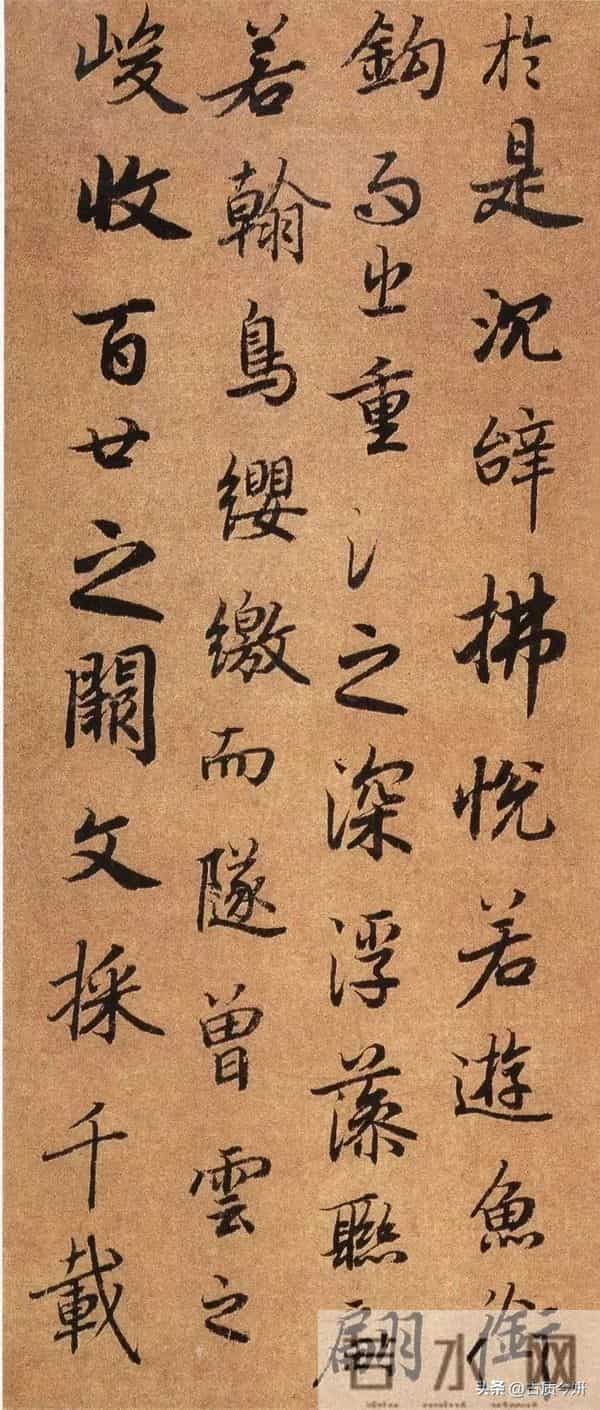 於是沉辝拂悅若遊魚銜
鈎而出重之深浮藻聯翩
若翰鳥纓繳而隧曾雲之
峻收百廿之闕文採千載
头条 @古质今妍